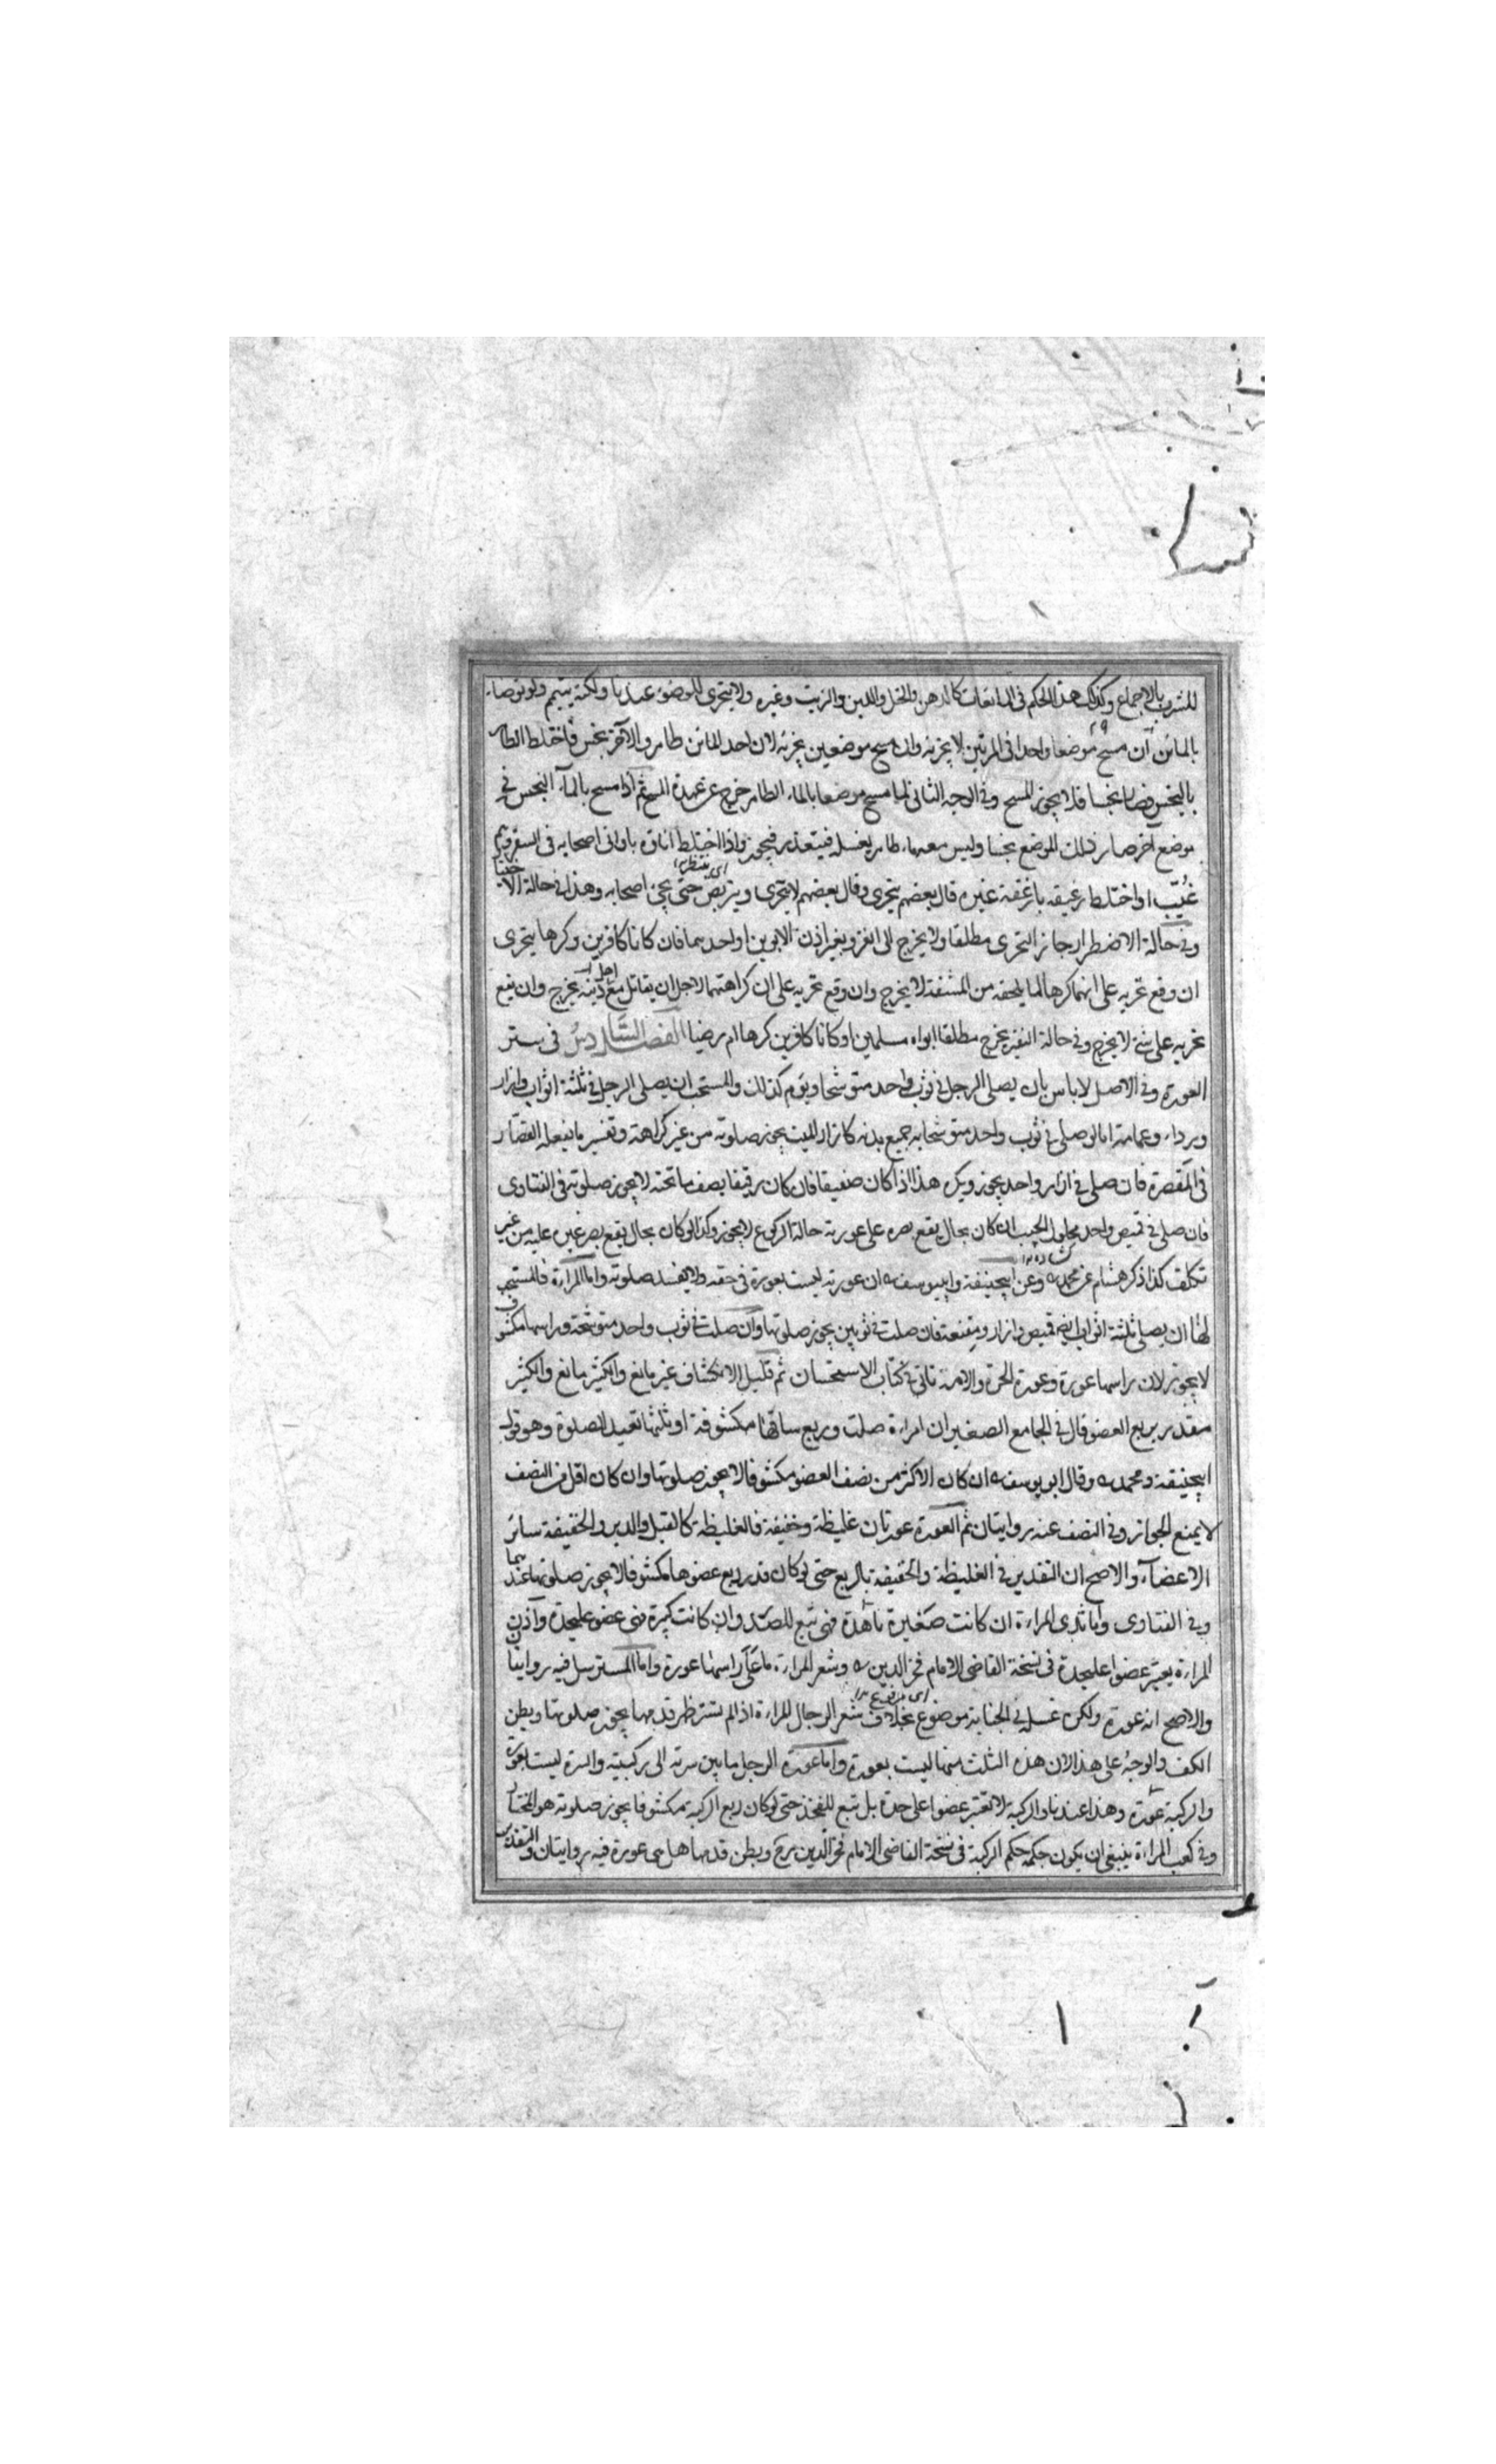 للشرب بالاجماع وكذلك هذا الحكم فى المايعات كالدهن والخل واللبن والزيت وغيره ولا يتحرى للوضوء عندنا ولكنه يتيمم ولو توضاء
بالمائين ان مسح موضعا واحدا فى المرتين لا يجزيه وان مسح موضعين يجزيه لان احد المائين طاهر والآخر نجس فاختلط الطاهر
بالنجس فصار نجسا فلا يجوز المسح وفى الوجه الثانى لما مسح موضعا بالماء الطاهر خرج عن عهدة المسح ثم اذا مسح بالماء النجس فى
موضع آخر صار ذلك الموضع نجسا وليس معه ماء طاهر يغسله فيتعذر فيجوز واذا اختلط اناؤه باوانى اصحابه فى السفر وهم
غُيّب او اختلط رغيفه بارغفة غيره قال بعضهم يتحرى وقال بعضهم لا يتحرى ويتربص حتى يجئ اصحابه وهذا فى حالة الاختيار
اى ينتظر
وفى حالة الاضطرار جاز التحرى مطلقا ولا يخرج الى الغزو بغير اذن الابوين او احدهما فان كانا كافرين وكرها يتحرى
ان وقع تحريه على انهما كرها لما يلحقه من المشقة لا يخرج وان وقع تحريه على ان كراهتهما لاجل ان يقاتل مع اهل دينه يخرج وان يقع
تحريه على شئ لا يخرج وفى حالة النفير يخرج مطلقا ابواه مسلمين او كانا كافرين كرها ام رضيا الفصل السادس فى ستر
العورة وفى الاصل لا باس بان يصلى الرجل فى ثوب واحد متوشحا ويؤم كذلك والمستحب ان يصلى الرجل فى ثلثة اثواب ازار
ورداء وعمامة اما لو صلى فى ثوب واحد متوشحا به جميع بدنه كازار الميت يجوز صلوته من غير كراهة وتفسيره ما يفعله القصّار
فى المقصرة فان صلى فى ازار واحد يجوز ويكره هذا اذا كان صفيقا فان كان رقيقا يصف ما تحته لا يجوز صلوته فى الفتاوى
فان صلى فى قميص واحد محلول الجيب ان كان بحال يقع بصره على عورته حالة الركوع لا يجوز وكذا لو كان بحال يقع بصر غيره عليه من غير
تكلف كذا ذكر هشام عن محمد وعن ابيحنيفة وابييوسف ان عورته ليست بعورة فى حقه ولا يفسد صلوته واما المراءة فالمستحب
لها ان يصلى ثلثة اثواب قميص وازار ومقنعة فان صلت فى ثوبين يجوز صلوتها وان صلت فى ثوب واحد متوشحة وراسها مكشوف
لا يجوز لان راسها عورة وعورة الحرة والامة تاتى فى كتاب الاستحسان ثم قليل الانكشاف غير مانع والكثير مانع والكثير
مقدر بربع العضو قال فى الجامع الصغير ان امراءة صلت وربع ساقها مكشوفة او ثلثها تعيد الصلوة وهو قول
ابيحنيفة ومحمد وقال ابو يوسف ان كان الاكثر من نصف العضو مكشوفا لا يجوز صلوتها وان كان اقل من النصف
لا يمنع الجواز وفى النصف عنه روايتان ثم العورة عورتان غليظة وخفيفة فالغليظة كالقبل والدبر والخفيفة سائر
الاعضاء والاصح ان التقدير فى الغليظة والخفيفة بالربع حتى لو كان قدر ربع عضوها مكشوفا لا يجوز صلوتها عندهما
وفى الفتاوى واما ثدى المراءة ان كانت صغيرة ناهدة فهى تبع للصدر وان كانت كبيرة فهى عضو عليحدة واذن
المراءة يعتبر عضوا عليحدة فى نسخة القاضى الامام فخر الدين وشعر المراءة ما على راسها عورة واما المسترسل فيه روايتان
والاصح انه عورة ولكن غسله فى الجنابة موضوع بخلاف شعر الرجال المراءة اذا لم تستر ظهر قدمها يجوز صلوتها وبطن
اى مرفوع
الكف والوجه على هذا لان هذه الثلث منها ليست بعورة واما عورة الرجل ما بين سرته الى ركبتيه والسرة ليست بعورة
والركبة عورة وهذا عندنا والركبة لا تعتبر عضوا على حدة بل تبع للفخذ حتى لو كان ربع الركبة مكشوفا يجوز صلوته هو المختار
وفى كعب المراءة ينبغى ان يكون حكمه حكم الركبة فى نسخة القاضى الامام فخر الدين رح وبطن قدمها هل هى عورة فيه روايتان والتقدير